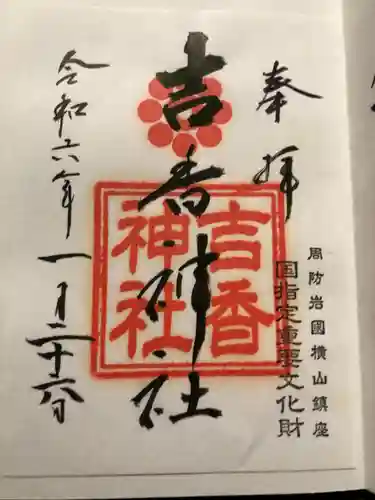 奉拝
周防岩國横山鎮座
国指定重要文化財
吉香神社
吉香神社
令和六年一月二十六日